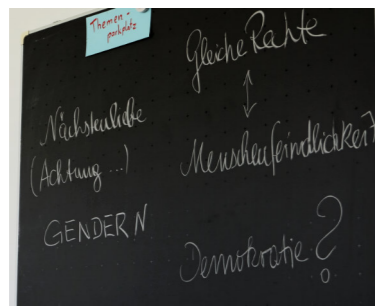 Themen-
parkplatz
Gleiche Rechte
↔
Nächstenliebe
(Achtung...)
Menschenfeindlichkeit
GENDERN
Demokratie?